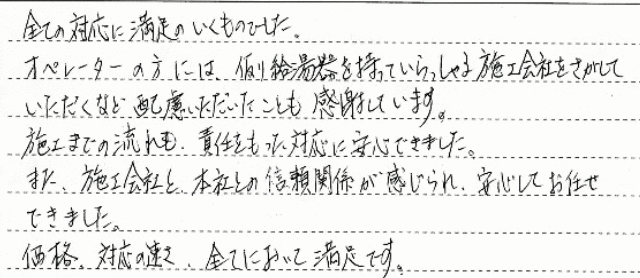 全ての対応に満足のいくものでした。
オペレーターの方には、仮り給湯器を持っていらっしゃる施工会社をさがして
いただくなど配慮いただいたことも感謝しています。
施工までの流れも、責任をもった対応に安心できました。
また、施工会社と本社との信頼関係が感じられ、安心してお任せ
できました。
価格、対応の速さ、全てにおいて満足です。